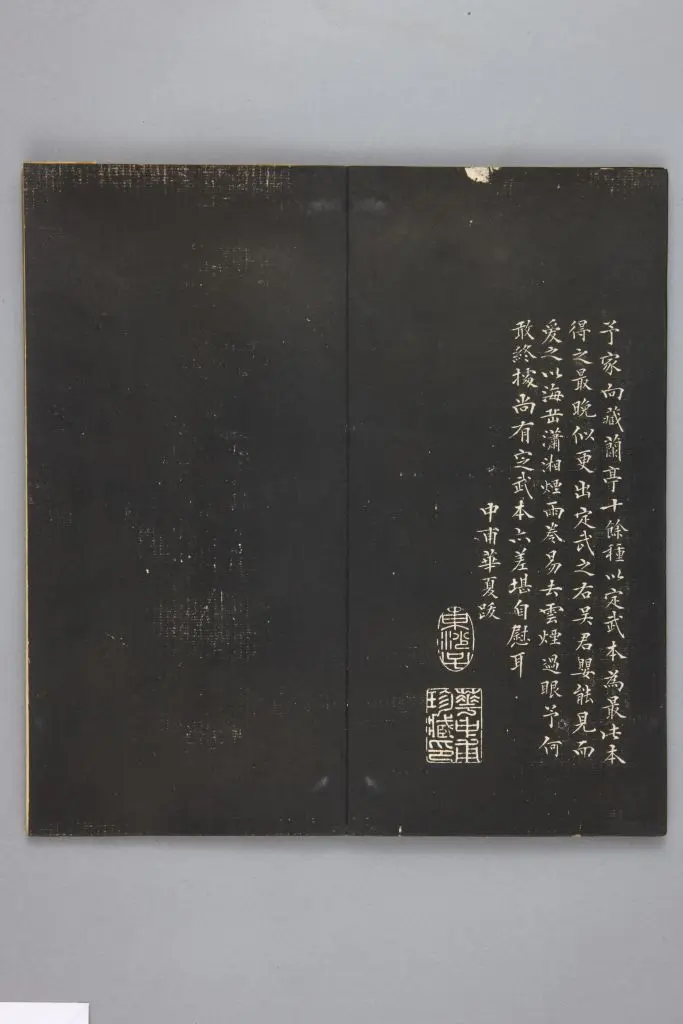 予家向藏蘭亭十餘種以定武本為最此本
得之最晚似更出定武之右吴君嬰能見而
愛之以海岳瀟湘煙雨卷易去雲煙過眼予何
敢終據尚有定武本六差堪自慰耳
中甫華夏跋
東沙子
華中甫
珍藏印